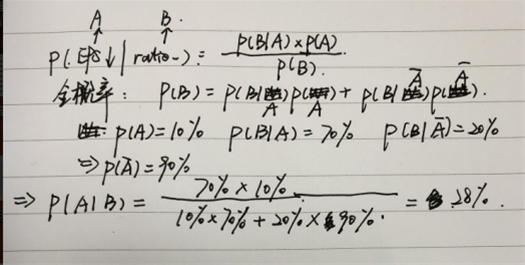 A B.
↑ ↑
P(EPS↓ | ratio-) = P(B|A)×P(A) / P(B).
全概率: P(B) = P(B|A)P(A) + P(B|Ā)P(Ā).
P(A)=10% P(B|A)=70% P(B|Ā)=20%
⇒P(Ā)=90%
⇒ P(A|B) = 70%×10% / 10%×70%+20%×90%. = 28%.